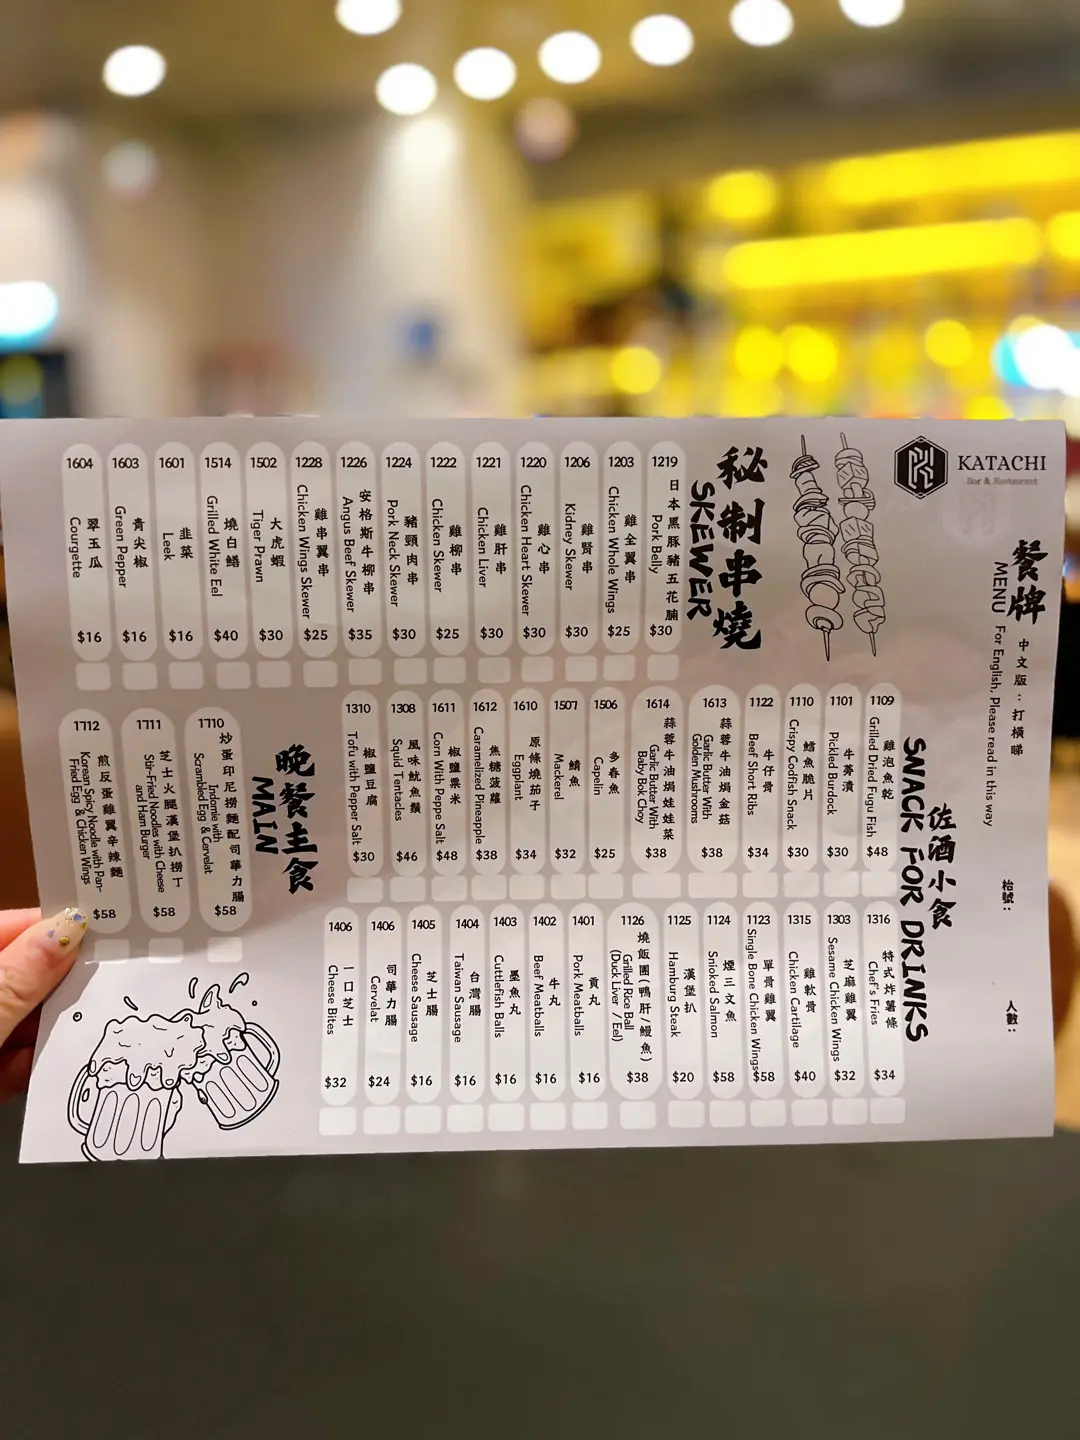 KATACHI
Bar & Restaurant
餐牌
MENU
中文版：打橫睇
For English, Please read in this way
枱號：
人數：
秘制串燒
SKEWER
1219
日本黑豚豬五花腩
Pork Belly
$30
1203
雞全翼串
Chicken Whole Wings
$25
1206
雞腎串
Kidney Skewer
$30
1220
雞心串
Chicken Heart Skewer
$30
1221
雞肝串
Chicken Liver
$30
1222
雞柳串
Chicken Skewer
$25
1224
豬頸肉串
Pork Neck Skewer
$30
1226
安格斯牛柳串
Angus Beef Skewer
$35
1228
雞串翼串
Chicken Wings Skewer
$25
1502
大虎蝦
Tiger Prawn
$30
1514
燒白鱔
Grilled White Eel
$40
1601
韭菜
Leek
$16
1603
青尖椒
Green Pepper
$16
1604
翠玉瓜
Courgette
$16
佐酒小食
SNACK FOR DRINKS
1109
雞泡魚乾
Grilled Dried Fugu Fish
$48
1101
牛蒡漬
Pickled Burdock
$30
1110
鱈魚脆片
Crispy Codfish Snack
$30
1122
牛仔骨
Beef Short Ribs
$34
1613
蒜蓉牛油焗金菇
Garlic Butter With
Golden Mushrooms
$38
1614
蒜蓉牛油焗娃娃菜
Garlic Butter With
Baby Bok Choy
$38
1506
多春魚
Capelin
$25
1507
鯖魚
Mackerel
$32
1610
原條燒茄子
Eggplant
$34
1612
焦糖菠蘿
Caramelized Pineapple
$38
1611
椒鹽粟米
Corn With Peppe Salt
$48
1308
風味魷魚鬚
Squid Tentacles
$46
1310
椒鹽豆腐
Tofu with Pepper Salt
$30
1316
特式炸薯條
Chef's Fries
$34
1303
芝麻雞翼
Sesame Chicken Wings
$32
1315
雞軟骨
Chicken Cartilage
$40
1123
單骨雞翼
Single Bone Chicken Wings
$58
1124
煙三文魚
Smioked Salmon
$58
1125
漢堡扒
Hamburg Steak
$20
1126
燒飯團(鴨肝/鰻魚)
Grilled Rice Ball
(Duck Liver / Eel)
$38
1401
貢丸
Pork Meatballs
$16
1402
牛丸
Beef Meatballs
$16
1403
墨魚丸
Cuttlefish Balls
$16
1404
台灣腸
Taiwan Sausage
$16
1405
芝士腸
Cheese Sausage
$16
1406
司華力腸
Cervelat
$24
1406
一口芝士
Cheese Bites
$32
晚餐主食
MAIN
1710
炒蛋印尼撈麵配司華力腸
Indomie with
Scrambled Egg & Cervelat
$58
1711
芝士火腿漢堡扒撈丁
Stir-Fried Noodles with Cheese
and Ham Burger
$58
1712
煎反蛋雞翼辛辣麵
Korean Spicy Noodle with Pan-
Fried Egg & Chicken Wings
$58